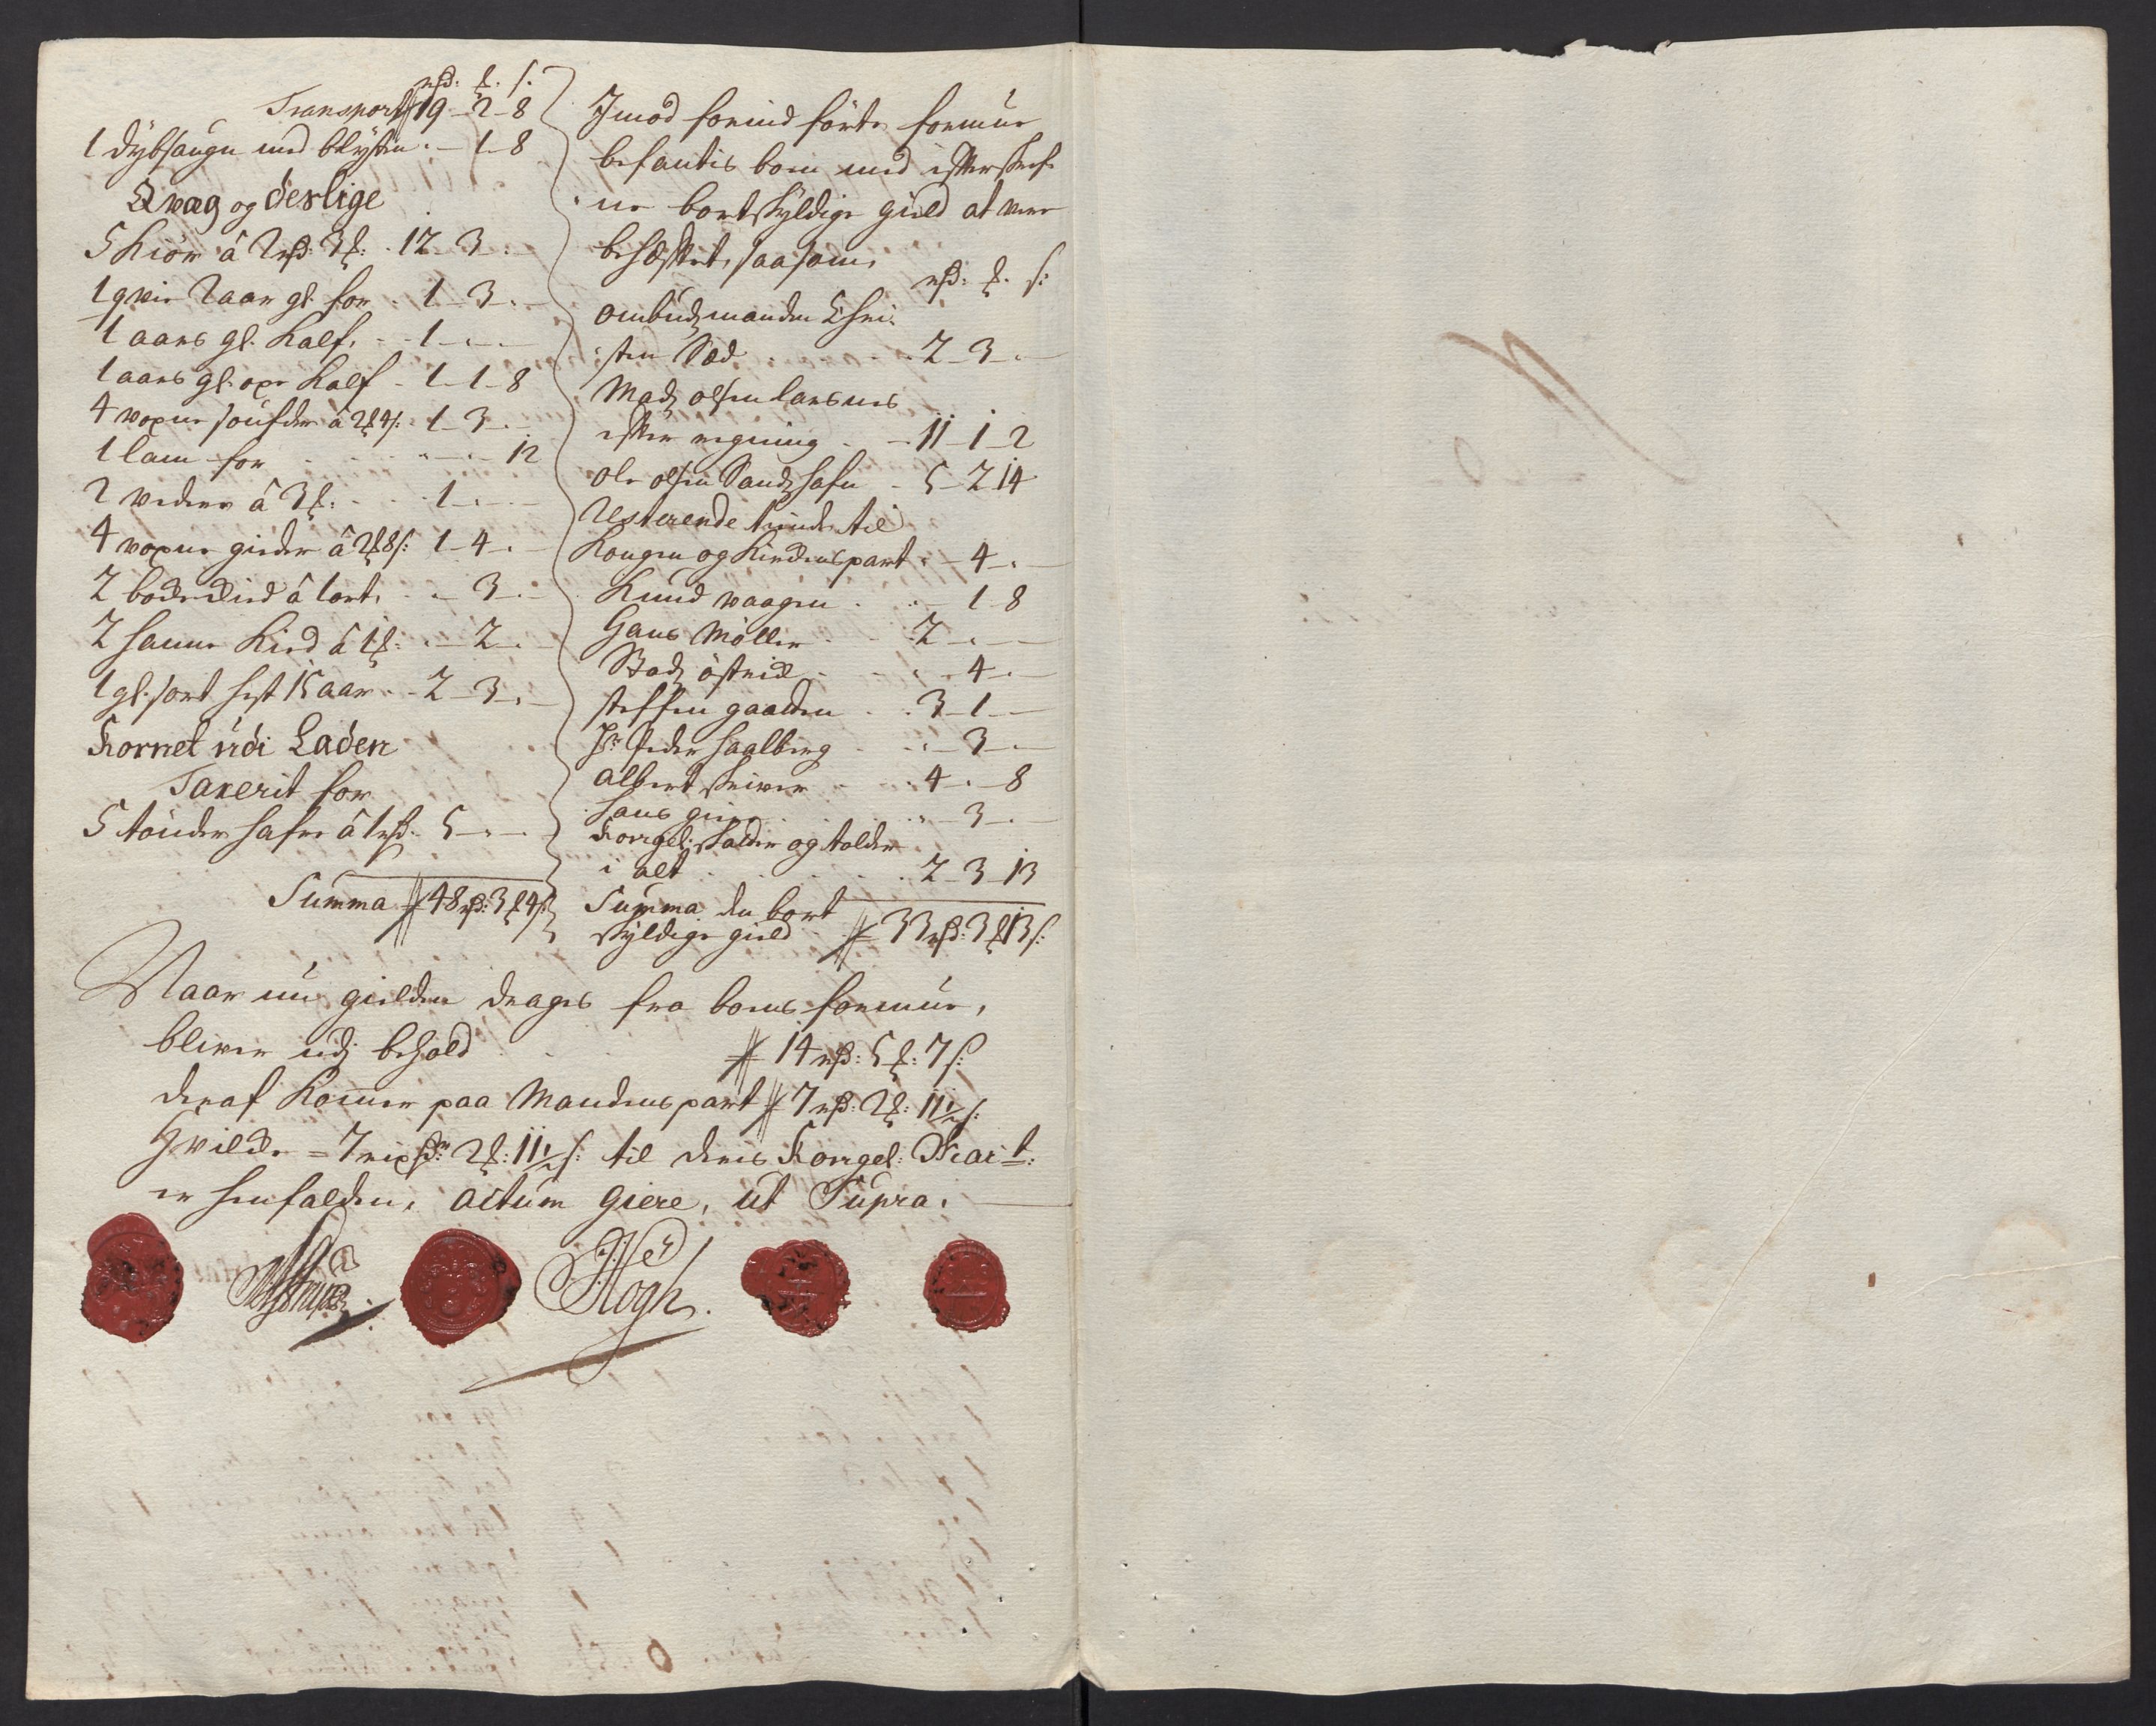 rd: ₰. s.
Transport 19 - 2 - 8
1 dybsaugn med blysten . - 1 - 8
Qvæg og deslige
5 Kiør â 2 rd: 3 ₰: . 12 - 3 . -
1 qvie 2 aar gl. for . 1 - 3 . -
1 aars gl. Kalf . - 1 - . -
1 aars gl. oxe Kalf - 1 - 1 - 8
4 voxne soufder â 2 ₰ 4 s: 1 - 3 . -
1 lam for . . - . - 12
2 veder â 3 ₰: . . 1 . -
4 voxne gieder â 2 ₰ 8 s: 1 - 4 . -
2 bocke Kied â 1 ort . - 3 . -
2 hanne Kied â 1 ₰: . - 2 . -
1 gl. sort hest 15 aar . - 2 - 3 . -
Kornet udi Laden
Taxerit for
5 tønder hafre â 1 rd. 5 - . -
Summa 48 rd: 3 ₰ 4 s:
Imod forind førte formue
befantis boen med efterskref-
ne bortskyldige gield at være
behæftet, saasom,
rd: ₰. s:
ombudzmanden Chri-
sten Sæd . . 2 - 3 . -
Madz olsen larsnes
efter regning . - 11 - 1 - 2
ole olsen Sandzhafn - 5 - 2 14
Resterende tiende til
Kongen og Kirckens part . - 4 - .
Knud vaagen . . - 1 - 8
Hans Møller . . 2 - . -
Madz østvid . . . 4 . -
steffen gaarden . . 3 - 1 -
Hr Peder haalberg . . - 3 . -
albert skriver . . 4 . - 8
hans giere . . . - 3 - .
Kongel: skatter og tolder
i alt . . . . 2 - 3 - 13
Summa den bort
skyldige gield . 33 rd: 3 ₰ 13 s:
Naar nu gielden drages fra boens formue,
bliver udj behold . . . 14 rd: 5 ₰: 7 s:
deraf Kommer paa Mandens part 7 rd: 2 ₰: 11½ s:
Hvilcke = 7 rixdr 2 ₰: 11½ s: til deris Kongel: Mait:
er henfalden, actum Giere, ut Supra.
Høgh